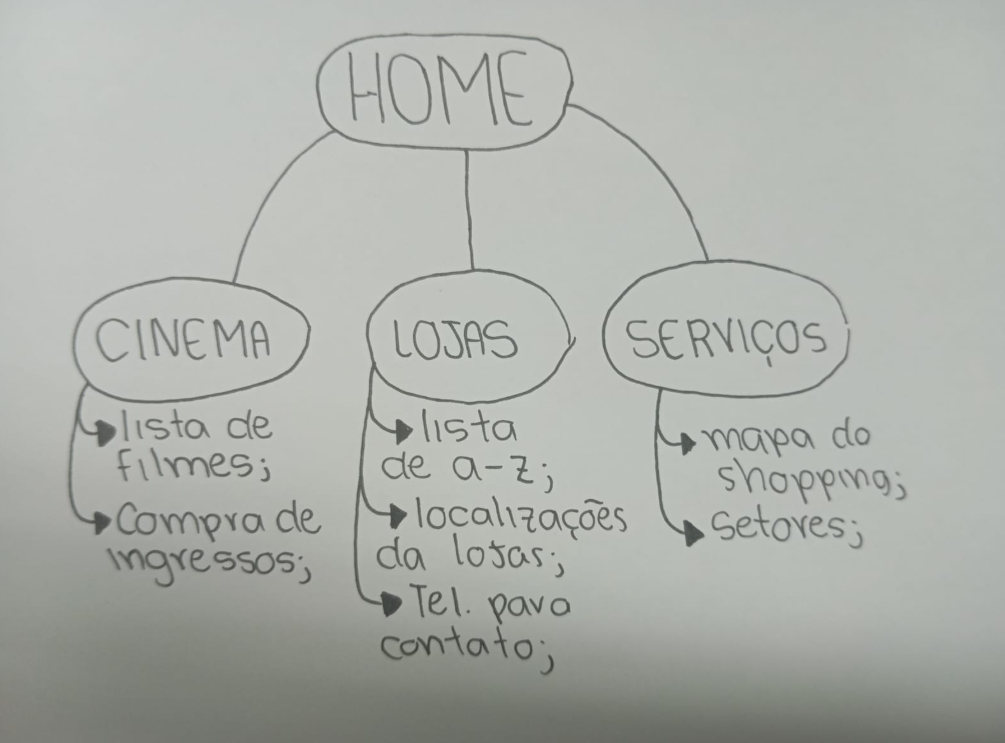 HOME
CINEMA
lista de
filmes;
Compra de
ingressos;
LOJAS
lista
de a-z;
localizações
da lojas;
Tel. para
contato;
SERVIÇOS
mapa do
shopping;
Setores;